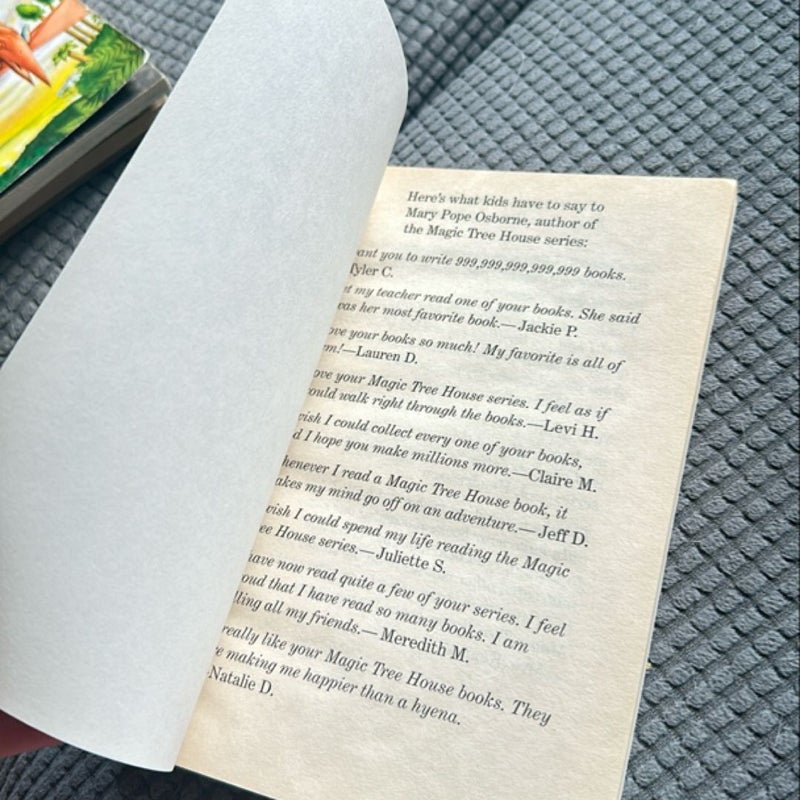 Here's what kids have to say to
Mary Pope Osborne, author of
the Magic Tree House series:
ant you to write 999,999,999,999,999 books.
Tyler C.
t my teacher read one of your books. She said
was her most favorite book.—Jackie P.
ove your books so much! My favorite is all of
m!—Lauren D.
ove your Magic Tree House series. I feel as if
ould walk right through the books.—Levi H.
wish I could collect every one of your books,
d I hope you make millions more.—Claire M.
henever I read a Magic Tree House book, it
akes my mind go off on an adventure.—Jeff D.
wish I could spend my life reading the Magic
ee House series.—Juliette S.
have now read quite a few of your series. I feel
oud that I have read so many books. I am
lling all my friends.—Meredith M.
really like your Magic Tree House books. They
re making me happier than a hyena.
Natalie D.